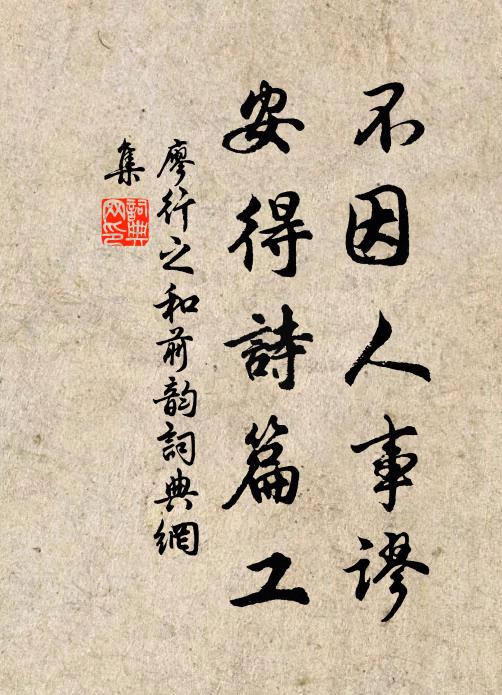 不因人事謬
安得詩篇工
廖行之和前韵詞典網
集
詞典
网印